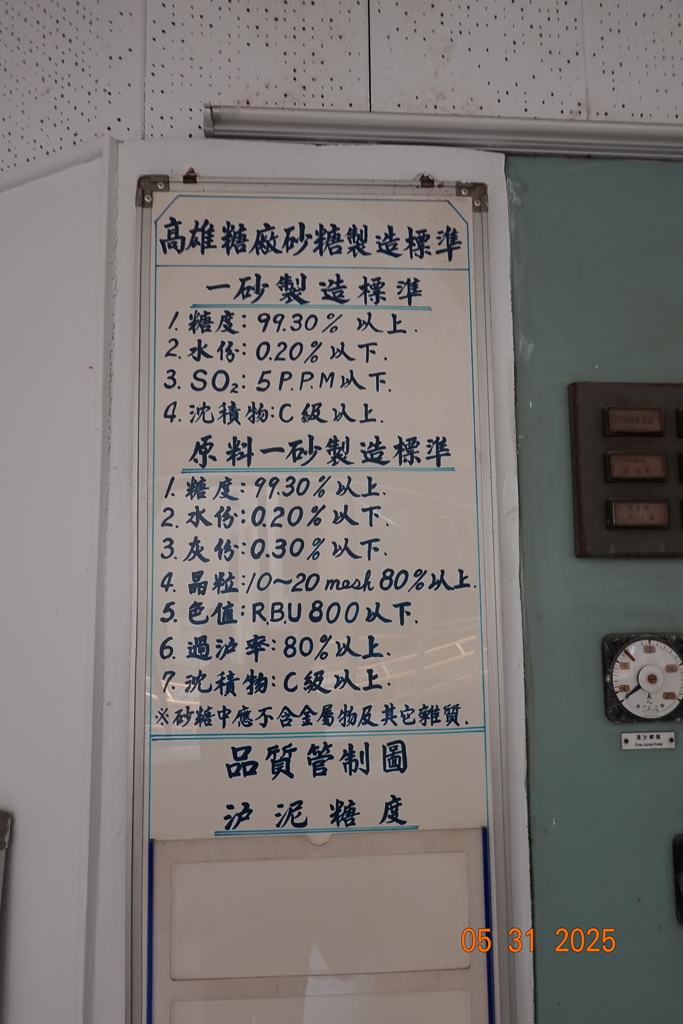 高雄糖廠砂糖製造標準
一砂製造標準
1. 糖度：99.30% 以上.
2. 水份：0.20% 以下.
3. SO₂：5 P.P.M 以下.
4. 沈積物：C 級以上.
原料一砂製造標準
1. 糖度：99.30% 以上.
2. 水份：0.20% 以下.
3. 灰份：0.30% 以下.
4. 晶粒：10～20 mesh 80% 以上.
5. 色值：R.B.U 800 以下.
6. 過沪率：80% 以上.
7. 沈積物：C 級以上.
※砂糖中應不含金屬物及其它雜質.
品質管制圖
沪泥糖度
05 31 2025